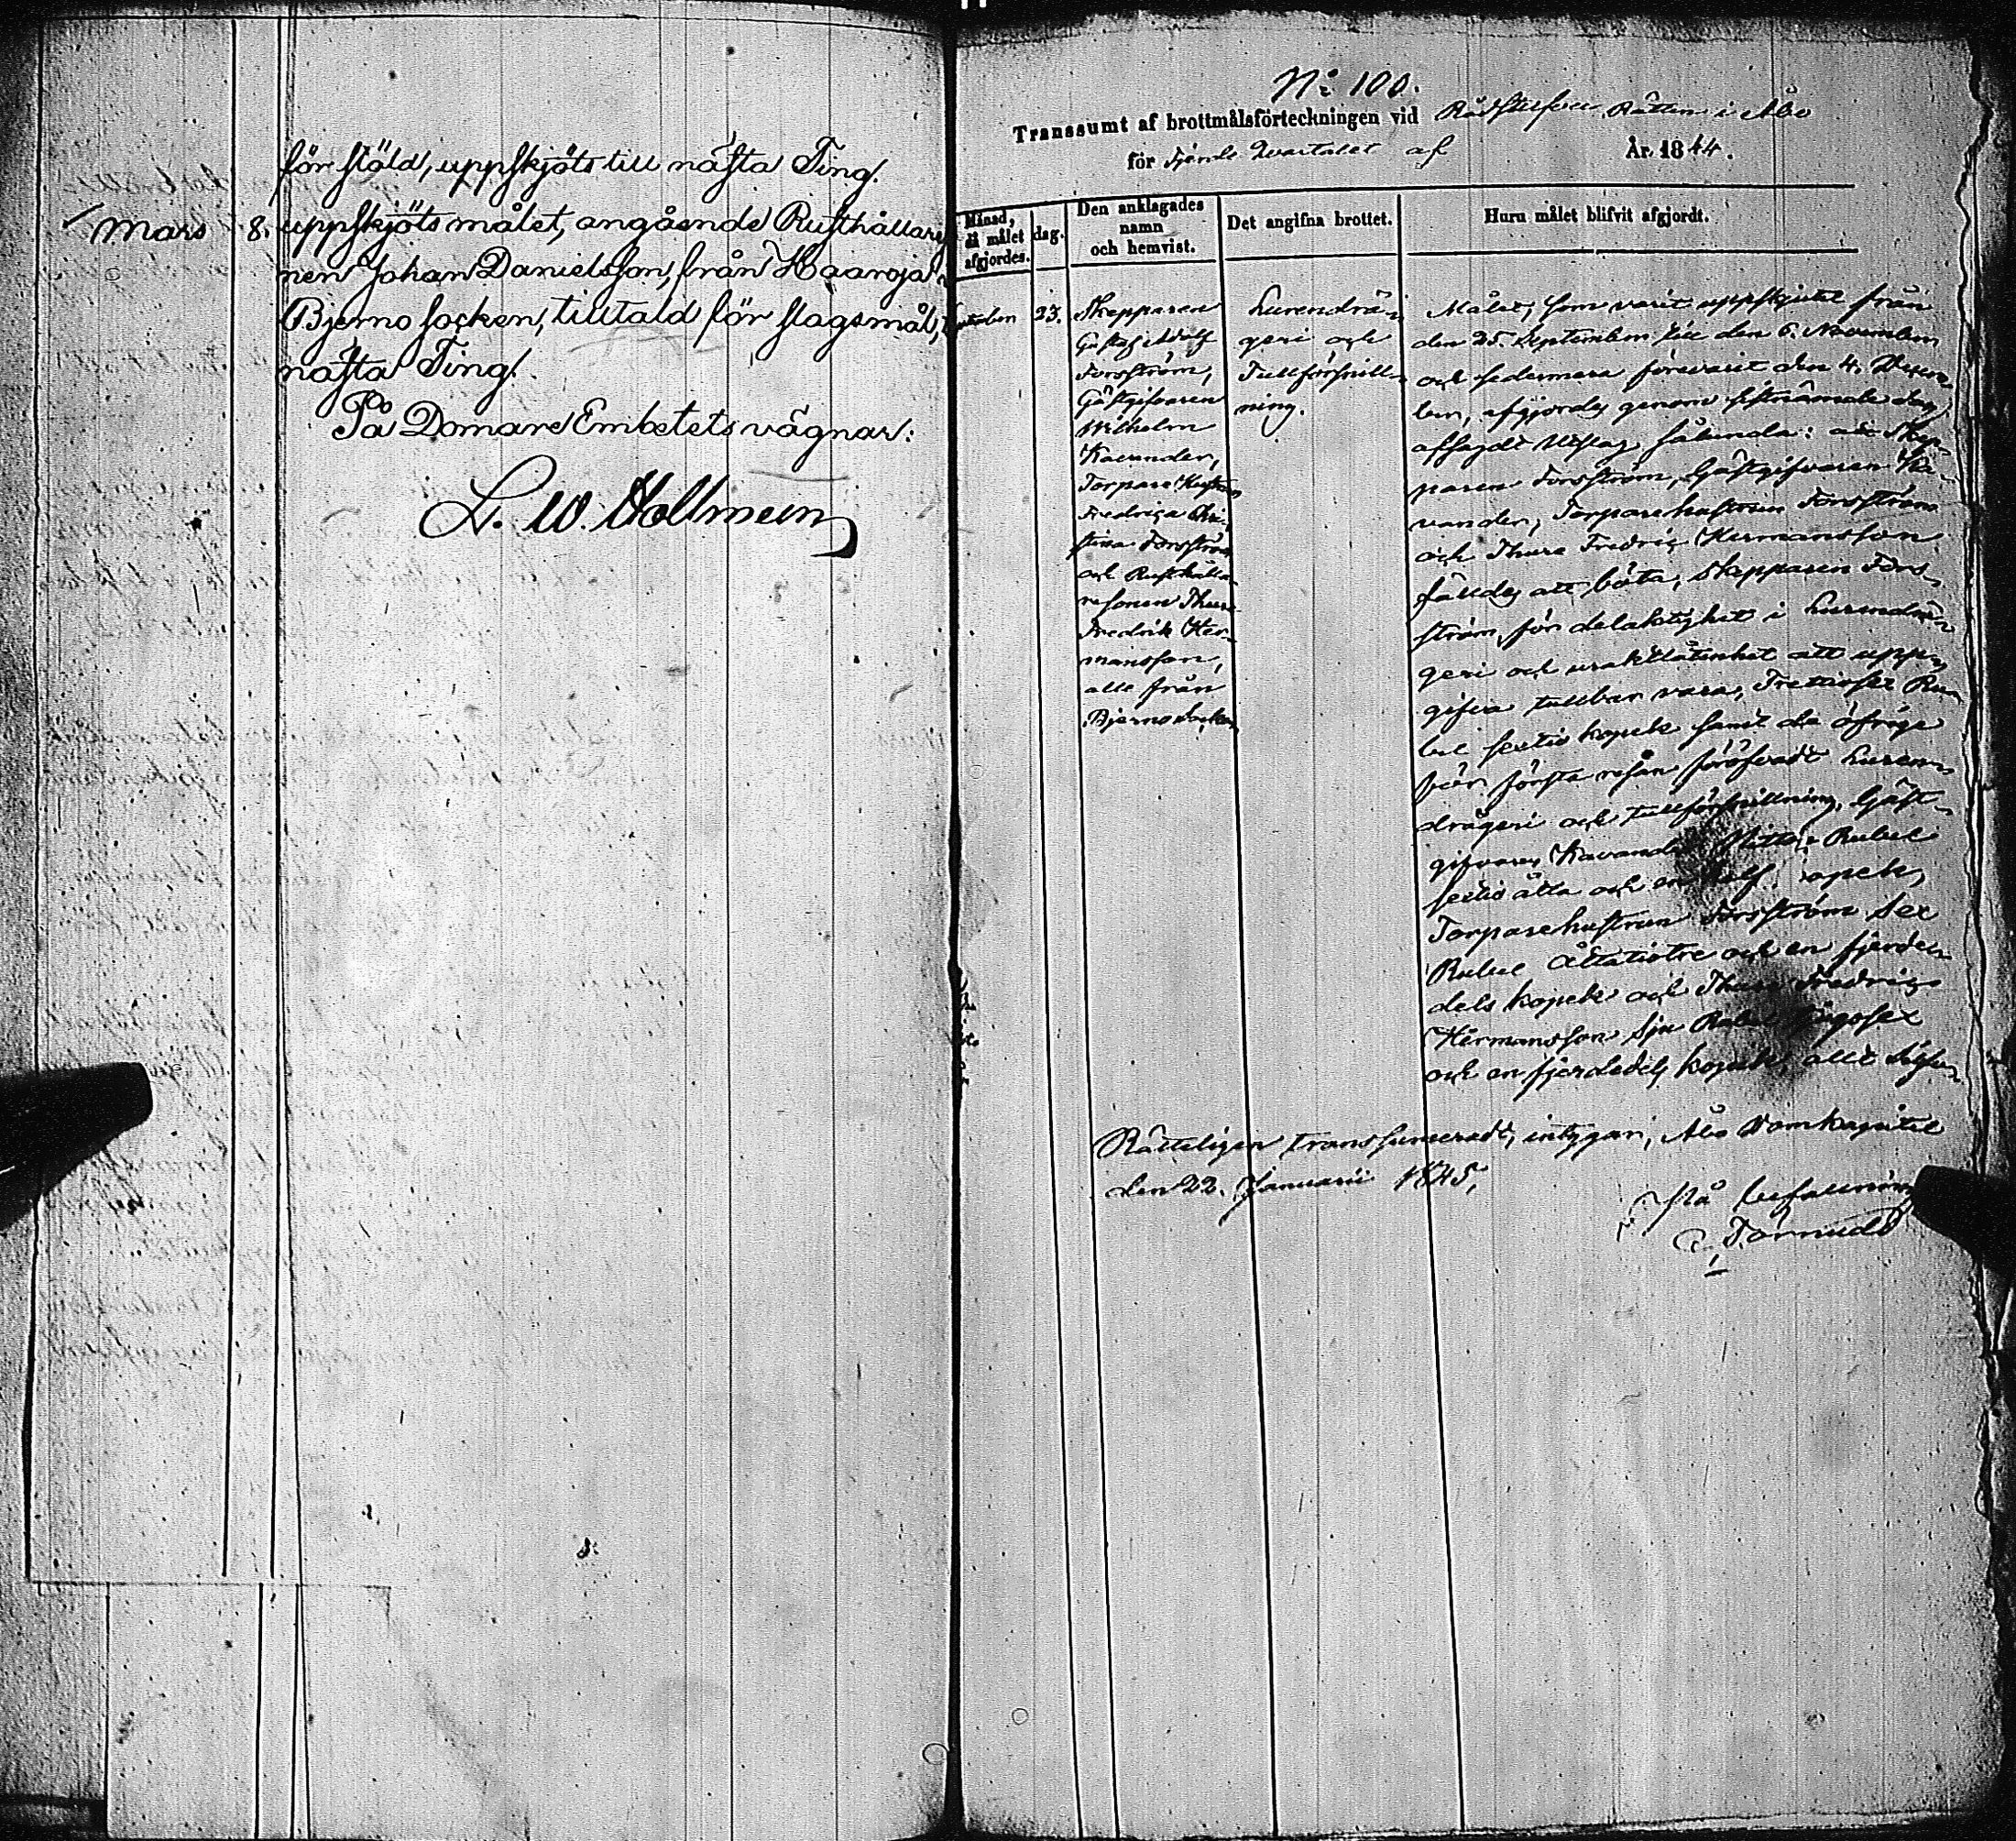 för stöld, uppskjöts till nästa Ting.
Mars 8. uppskjöts målet, angående Rusthållareso-
nen Johan Danielsson, från Haaroja
Bjerno socken, tilltald för slagsmål, till
nästa Ting.
På Domare Embetets vägnar:
L. W. Hollmeen
No 100.
Transsumt af brottmålsförteckningen vid Rådstufvu Rätten i Åbo
för Fjerde Qvartalet af År 1844.
Månad, då målet afgjordes.
dag.
Den anklagades namn och hemvist.
Det angifna brottet.
Huru målet blifvit afgjordt.
23.
Skepparen
Gustaf Adolf
Forsström,
Gästgifvaren
Wilhelm
Kavander,
Torpare hustrun
Fredrica Chri-
stina Forsström
och Rusthålla-
resonen Thure
Fredrik Her-
mansson,
alle från
Bjerno Socken
Lurendrä-
geri och
Tullförsnill-
ning.
Målet, som varit uppskjutet från
den 25. September till den 6. November
och sedermera förevarit den 4. Decem-
ber, afgjordes genom sistnämnde dag
afsagdt Utslag sålunda: att Skep-
paren Forsström, Gästgifvaren Ka-
vander, Torparehustrun Forsström
och Thure Fredric Hermansson
fälldes att böta, Skepparen Fors-
ström, för delaktighet i Lurendrä-
geri och uraktlåtenhet att upp-
gifva tullbar vara, Trettiosex Ru-
bel sextio kopek samt de öfrige
för första resan föröfvadt Luren-
drägeri och tullförsnillning, Gäst-
gifvaren Kavander Nitton Rubel
sextio åtta och en half kopek,
Torparehustrun Forsström Sex
Rubel Åttatiotre och en fjerde-
dels kopek och Thure Fredric
Hermansson Sju Rubel tjugosex
och en fjerdedels kopek, allt Silfver
Rätteligen transsumeradt, intygar, Åbo Domkapitel
den 22. Januarii 1845,
På befallning
Törnudd